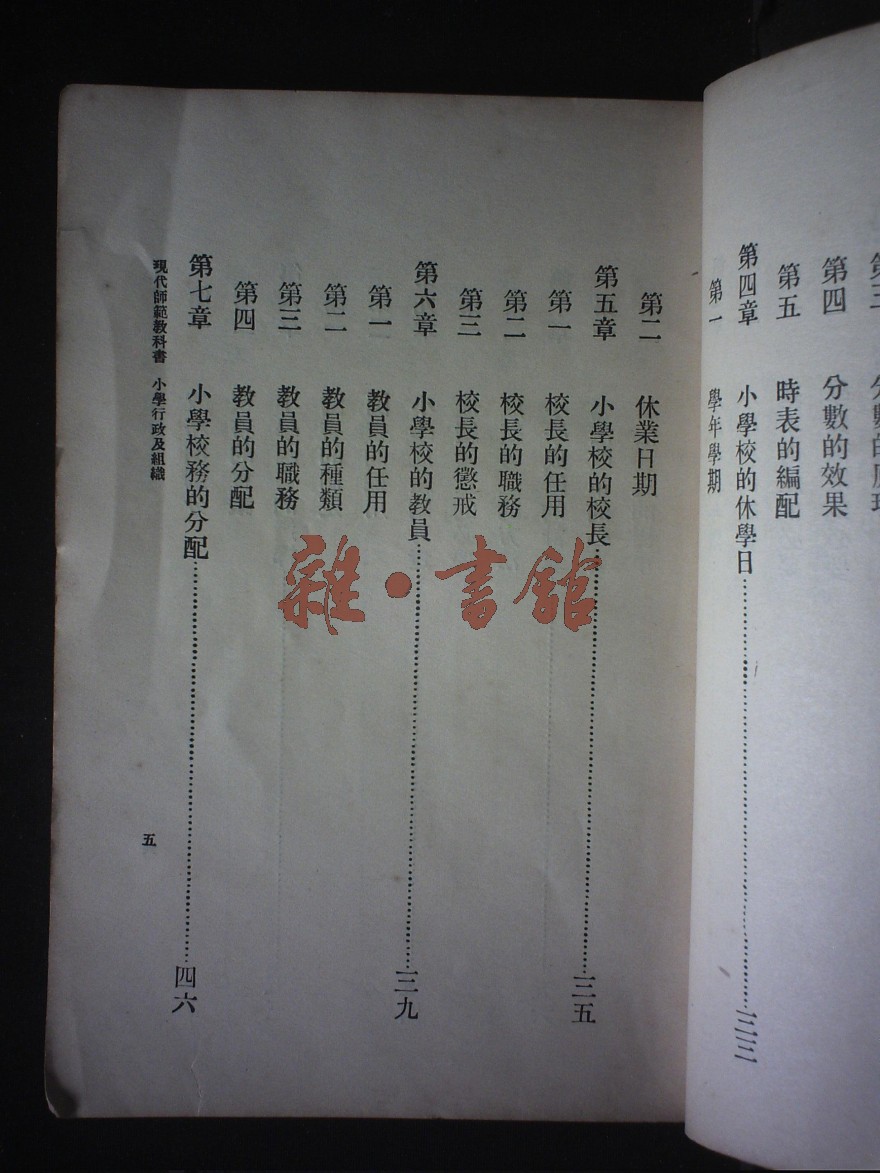 第四 分數的效果
第五 時表的編配
第四章 小學校的休學日……三三
第一 學年學期
第二 休業日期
第五章 小學校的校長……三五
第一 校長的任用
第二 校長的職務
第三 校長的懲戒
第六章 小學校的教員……三九
第一 教員的任用
第二 教員的種類
第三 教員的職務
第四 教員的分配
第七章 小學校務的分配……四六
現代師範教科書 小學行政及組織
五
雜·書館